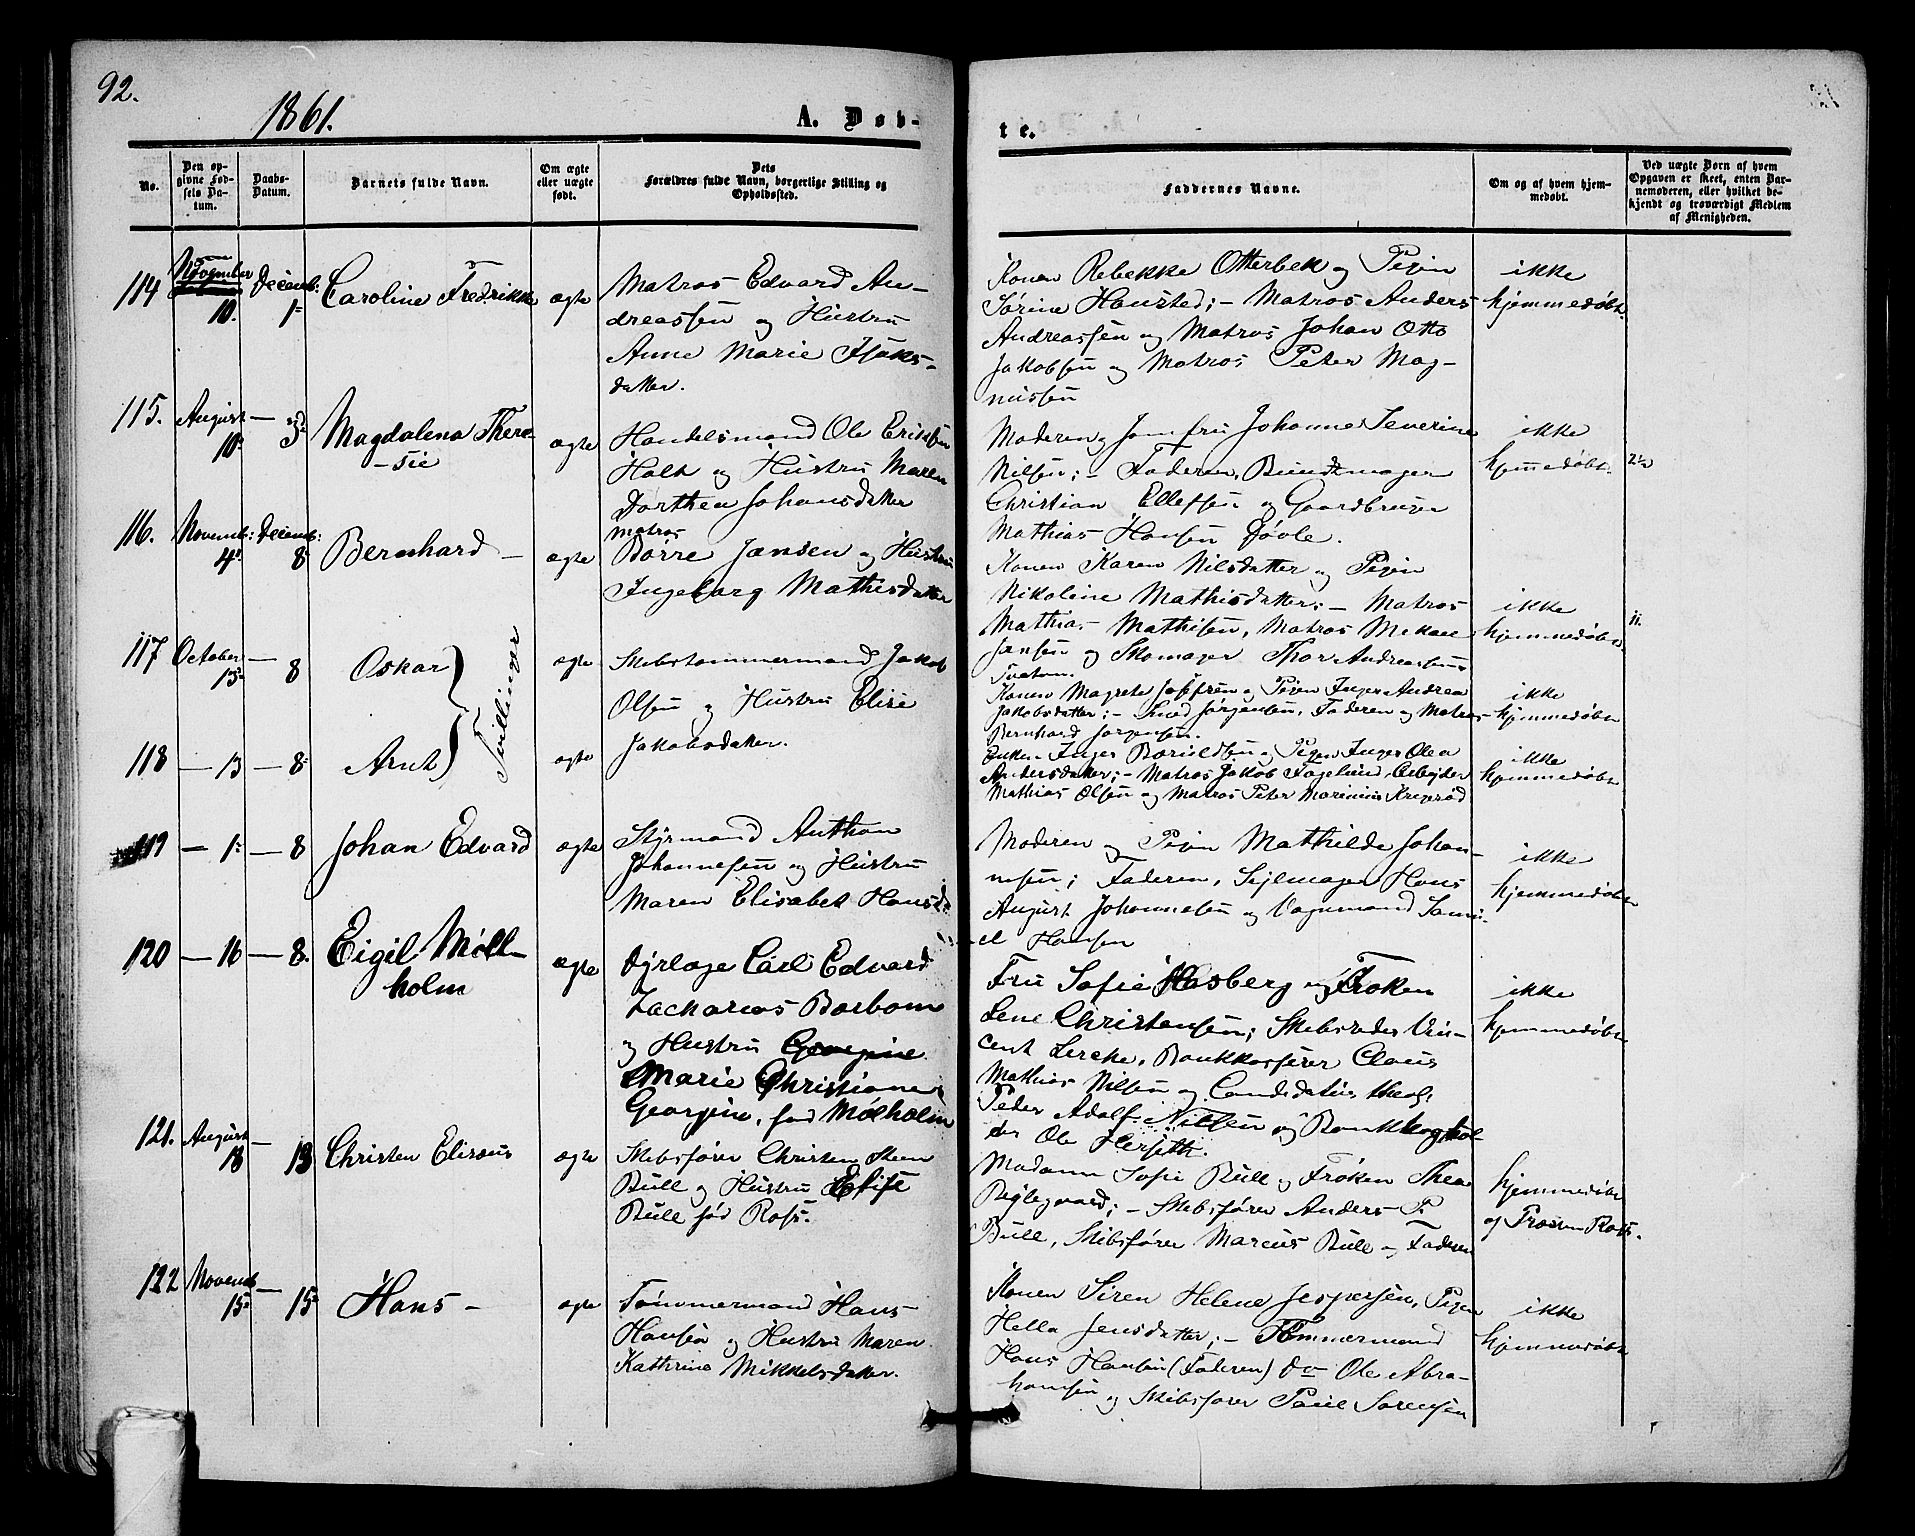 92.
1861.
A. Døb-
te.
No.
Den op-
givne Fød-
sels Da-
tum.
Daabs-
Datum.
Barnets fulde Navn.
Om ægte
eller uægte
født.
Dets
Forældres fulde Navn, borgerlige Stilling og
Opholdssted.
Faddernes Navne.
Om og af hvem hjem-
medøbt.
Ved uægte Børn af hvem
Opgaven er skeet, enten Bar-
nemoderen, eller hvilket be-
kjendt og troværdigt Medlem
af Menigheden.
114
November
10.
Decemb:
1ste
Caroline Fredrikke
ægte
Matros Edvard An-
dreassen og Hustru
Anne Marie Isaks-
datter.
Konen Rebekke Otterbek og Pigen
Sørine Hansted; - Matros Anders
Andreassen og Matros Johan Otto
Jakobsen og Matros Peter Mag-
nussen
ikke
hjemmedøbt.
115.
August
10.
— 3d
Magdalena There-
-sie
ægte
Handelsmand Ole Eriksen
Holt og Hustru Maren
Dorthea Johansdatter
Moderen og Jomfru Johanne Severine
Nilsen; - Faderen, Buntmager
Christian Ellefsen og Gaardbruger
Mathias Hansen Døvle.
ikke
hjemmedøbt.
116.
Novemb:
4de
Decemb:
8
Bernhard -
ægte
Matros
Børre Jansen og Hustru
Ingeborg Mathisdatter
Konen Karen Nilsdatter og Pigen
Nikoline Mathisdatter; - Matros
Mathias Mathisen, Matros
Jansen og Skomager Thor Andreassen
ikke
hjemmedøbt
117
October
13
— 8
Oskar
Tvillinger
ægte
Skibstømmermand Jakob
Olsen og Hustru Elise
Jakobsdatter.
Konen Magrete Joffren og Pigen Inger Andrea
Jakobsdatter; - Smed Jørgensen, Faderen og Matros
Bernhard Jørgensen.
ikke
hjemmedøbt
118
— 13
— 8
Arnt
ægte
Enken Inger Børildsen og Pigen Inger Olea
Andersdatter; - Matros Jakob Fagelund, Arbejder
Mathias Olsen og Matros Peter Marinius Krigerød
ikke
hjemmedøbt
119
— 1ste
— 8
Johan Edvard
ægte
Styrmand Anthon
Johannesen og Hustru
Maren Elisabet Hansd.
Moderen og Pigen Mathilde Johan-
nesen; Faderen, Sejlmager Hans
August Johannesen og Vognmand Samu-
el Hansen
ikke
hjemmedøbt
120
— 16
— 8.
Eigil Møll-
holm
ægte
Dyrlæge Carl Edvard
Zackarias Barbom
og Hustru Georgine
Marie Christiane
Georgine, fød Mølholm
Fru Sofie Hasberg og Frøken
Lene Christensen; Skibsreder Vin-
cent Lerche, Bankkasserer Claus
Mathias Nilsen og Candidatus theol:
Peder Adolf Nilsen og Bankboghol-
der Ole Herseth.
ikke
hjemmedøbt
121.
August
18
— 13
Christen Elisæus
ægte
Skibsfører Christen Steen
Bull og Hustru Elise
Bull fød Ross.
Madame Sofie Bull og Frøken Thea
Røglegaard; - Skibsfører Anders P.
Bull, Skibsfører Marcus Bull og Faderen
hjemmedøbt
og Ross.
122
Novemb
15
— 15
Hans -
ægte
Tømmermand Hans
Hansen og Hustru Maren
Kathrine Mikkelsdatter.
Konen Siren Helene Jespersen, Pigen
Hella Jensdatter; - Tømmermand
Hans Hansen (Faderen) do Ole Abra-
hamsen og Skibsfører Paul Sørensen
ikke
hjemmedøbt